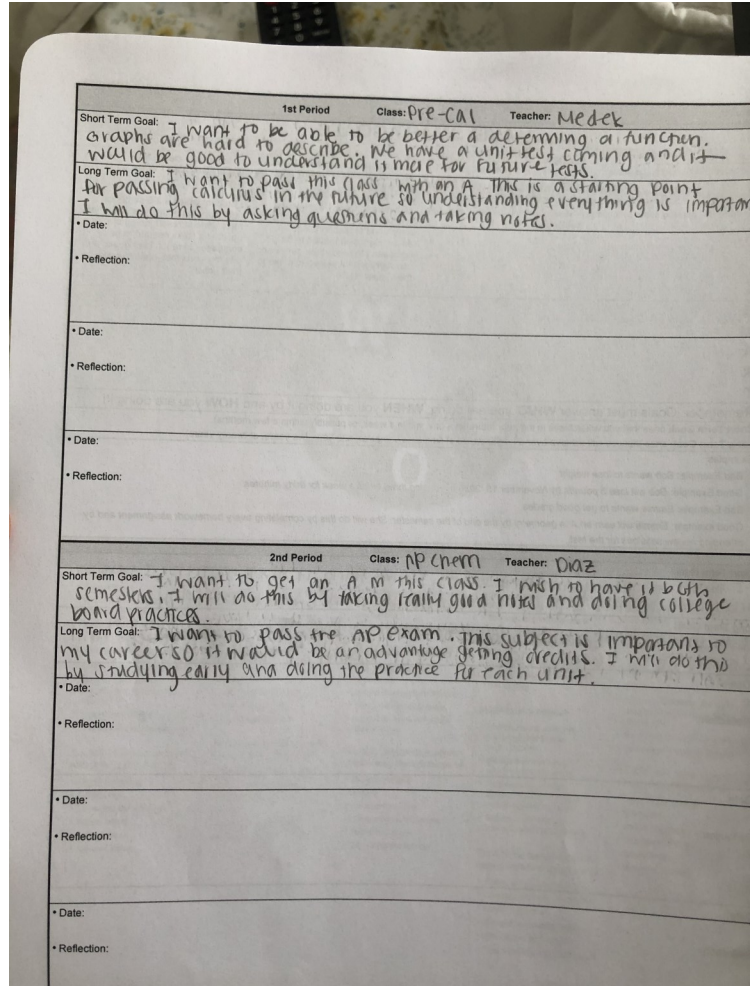 1st Period Class: Pre-Cal Teacher: Medek
Short Term Goal: I want to be able to be better a determing a function.
Graphs are hard to describe. We have a unit test coming and it
would be good to understand it more for future tests.
Long Term Goal: I want to pass this class with an A. This is a starting point
for passing calculus in the future so understanding everything is importan
I will do this by asking questions and taking notes.
• Date:
• Reflection:
• Date:
• Reflection:
• Date:
• Reflection:
2nd Period Class: AP Chem Teacher: Diaz
Short Term Goal: I want to get an A in this class. I wish to have it both
semesters. I will do this by taking really good notes and doing college
board practices.
Long Term Goal: I want to pass the AP exam. This subject is important to
my career so it would be an advantage getting credits. I will do this
by studying early and doing the practice for each unit.
• Date:
• Reflection:
• Date:
• Reflection:
• Date:
• Reflection: